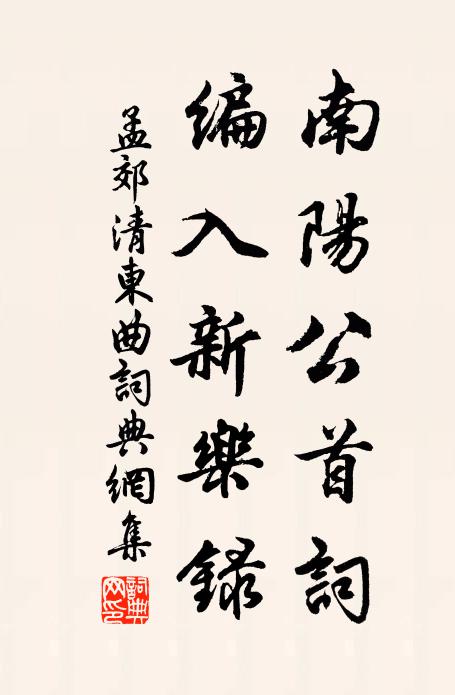 南陽公首詞
編入新樂錄
孟郊清東曲詞典網集
詞典网印